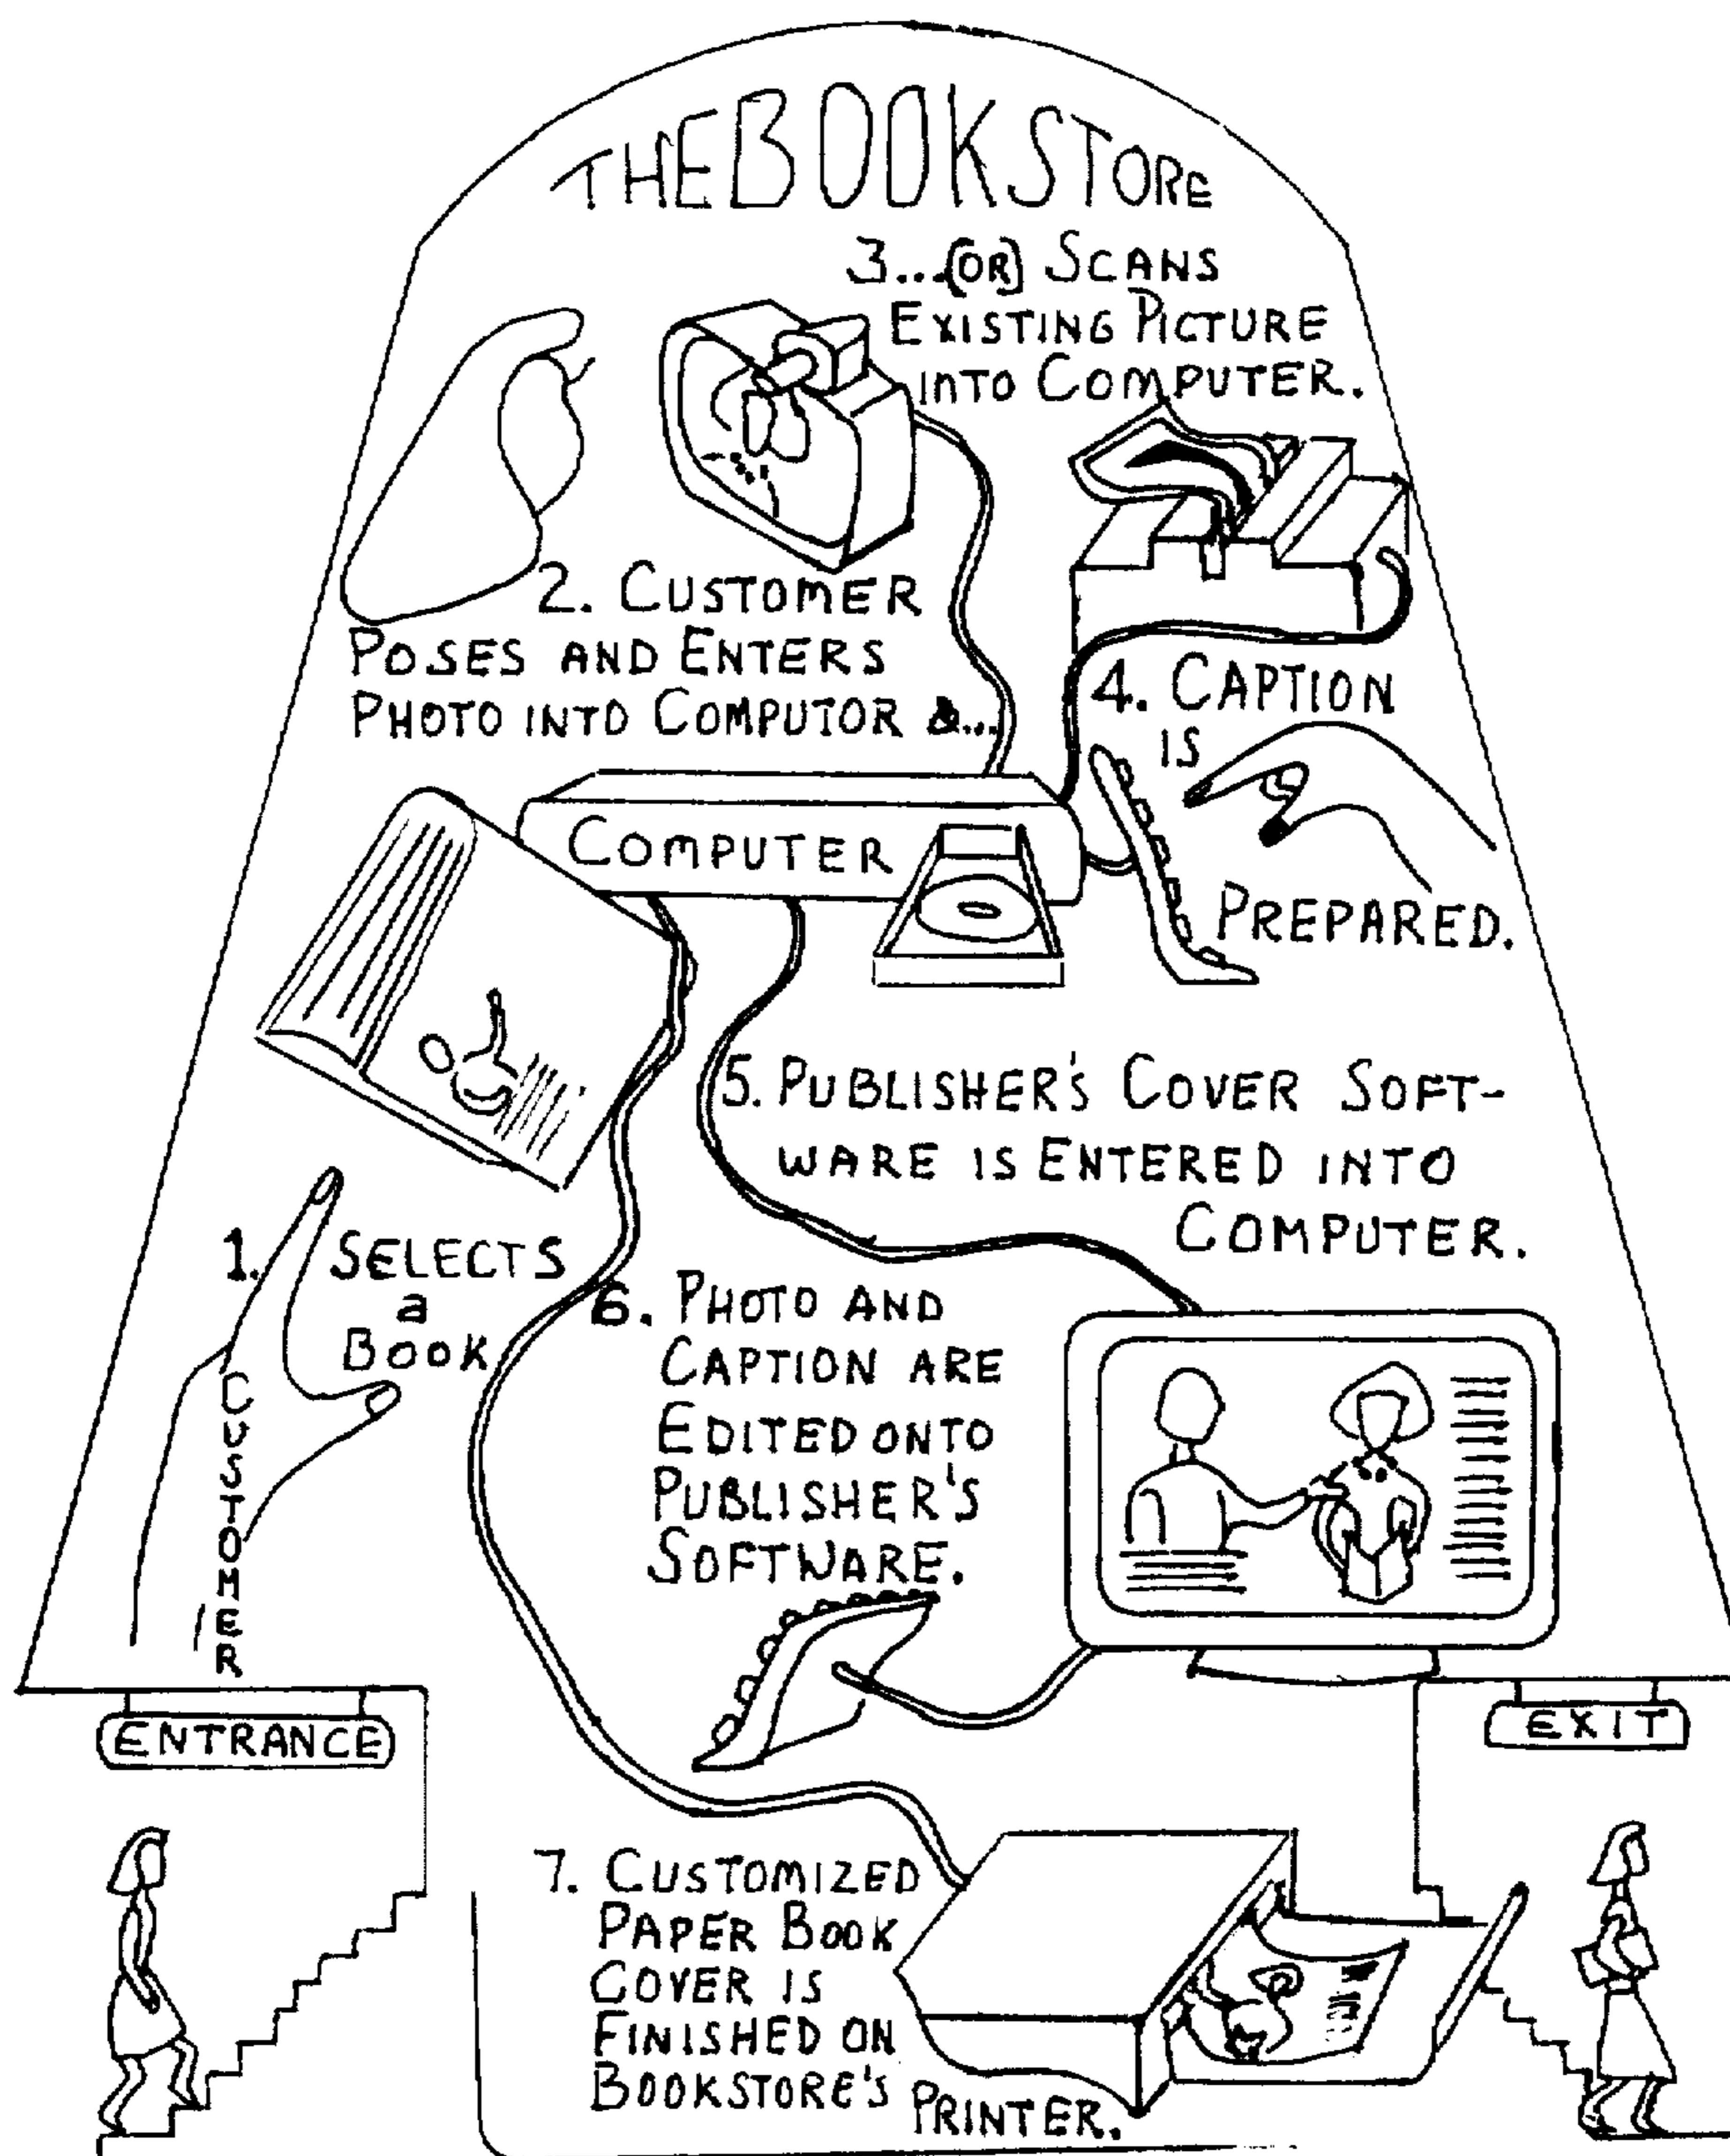 THE BOOK STORE
3...(OR) SCANS
EXISTING PICTURE
INTO COMPUTER.
2. CUSTOMER
POSES AND ENTERS
PHOTO INTO COMPUTOR &...
4. CAPTION
IS
PREPARED.
COMPUTER
5. PUBLISHER'S COVER SOFT-
WARE IS ENTERED INTO
COMPUTER.
1. SELECTS
a
BOOK
CUSTOMER
6. PHOTO AND
CAPTION ARE
EDITED ONTO
PUBLISHER'S
SOFTWARE.
ENTRANCE
EXIT
7. CUSTOMIZED
PAPER BOOK
COVER IS
FINISHED ON
BOOKSTORE'S PRINTER.